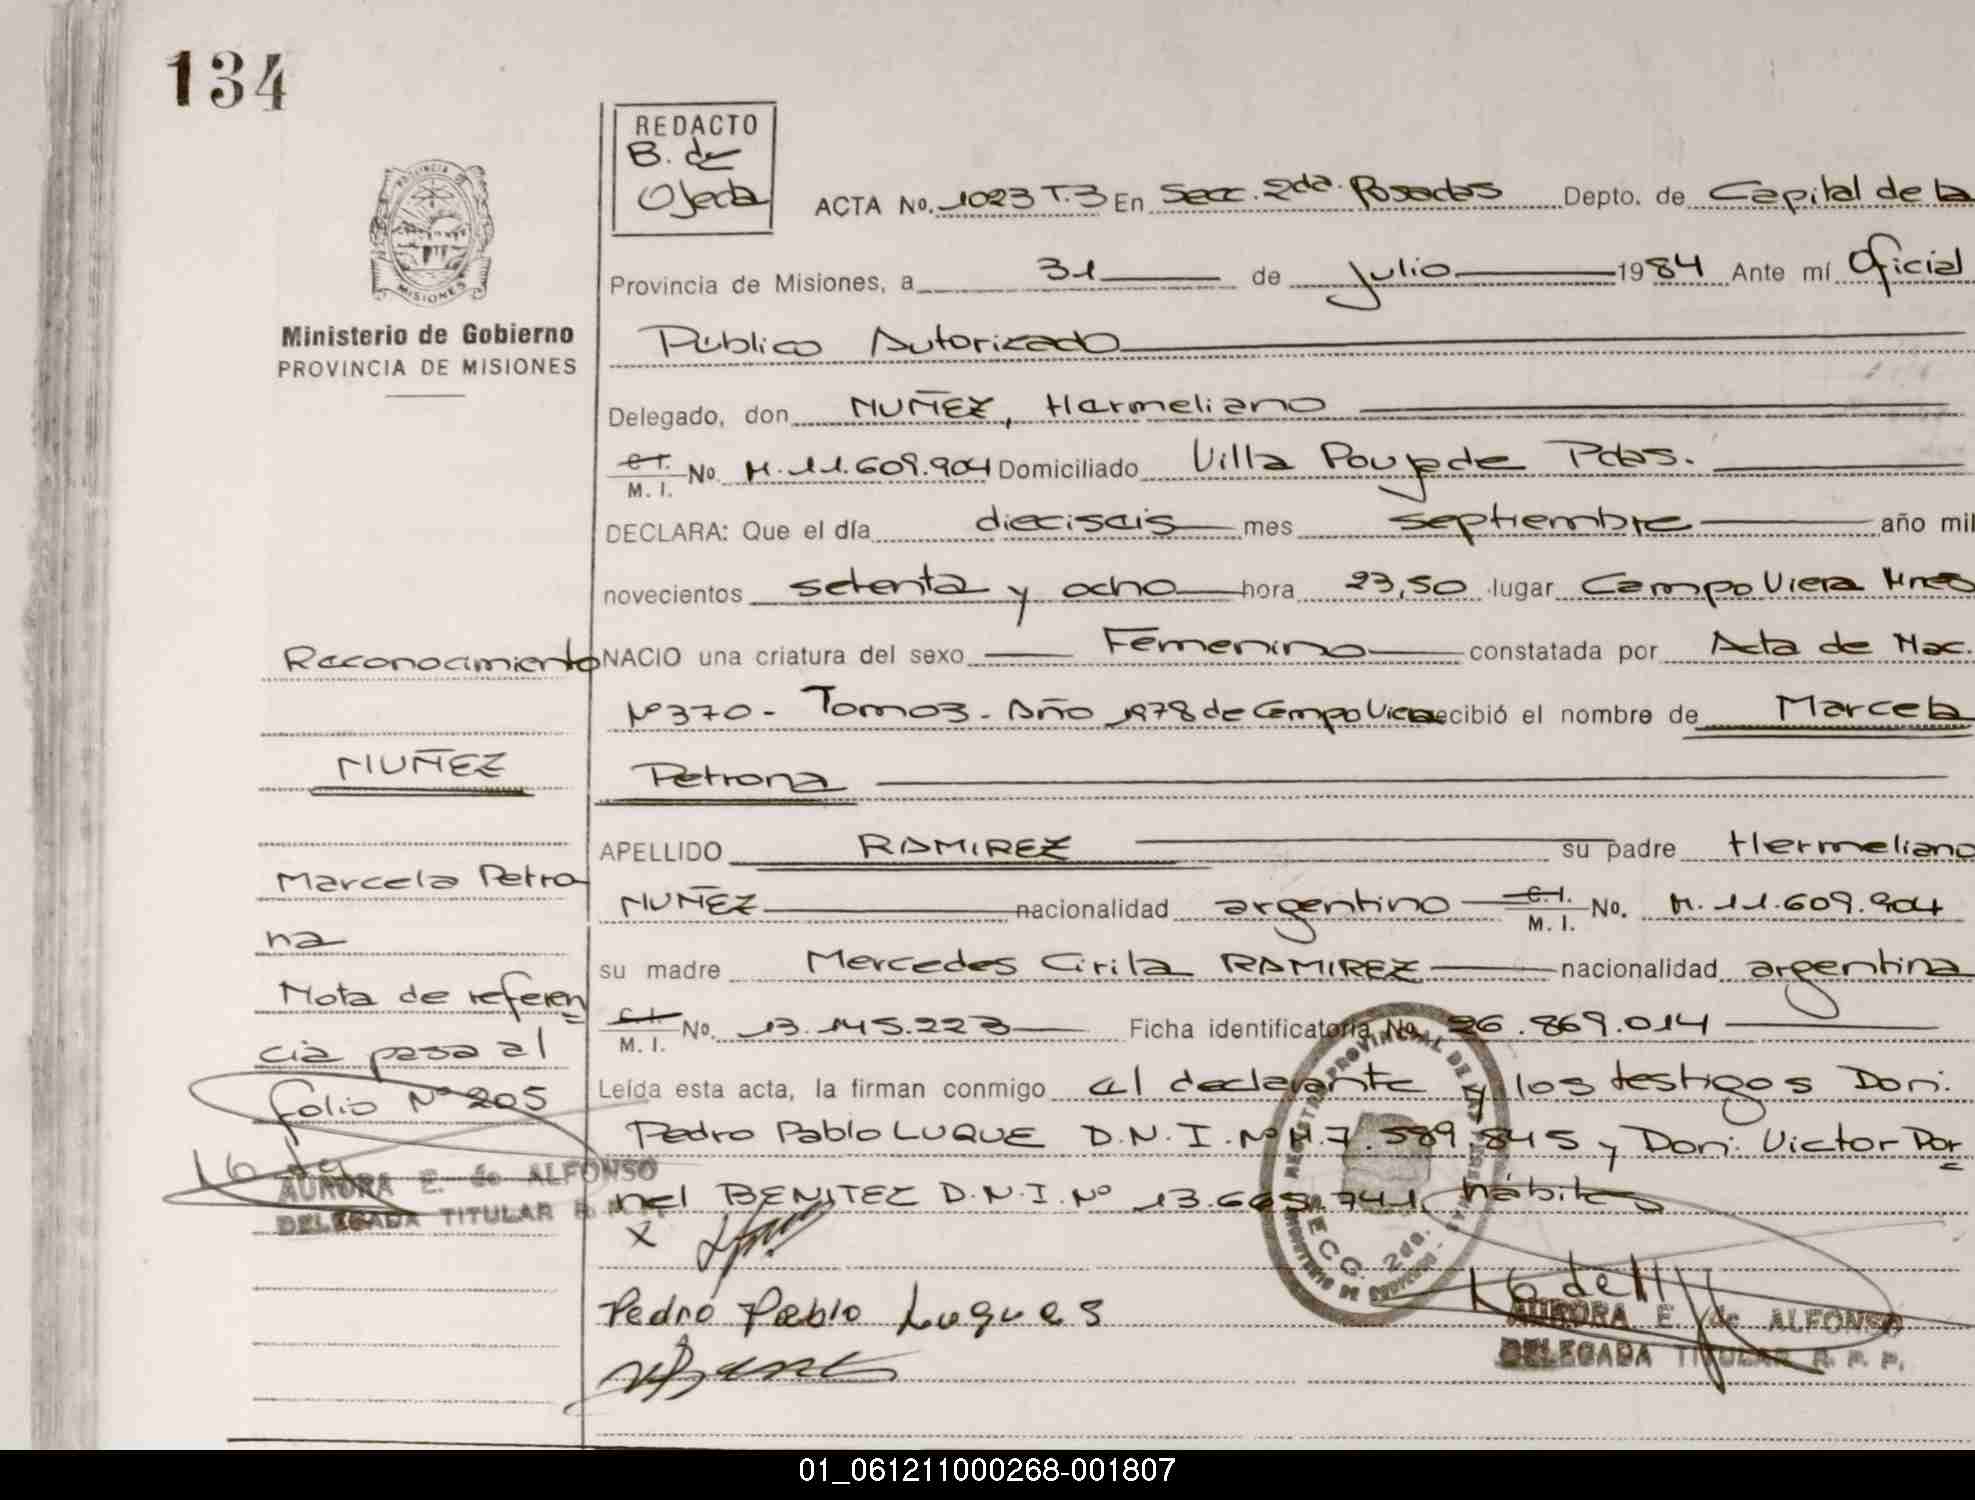 134
REDACTO
B. de
Ojeda
ACTA No. 1023 T.3 En Secc. 2da. Posadas Depto. de Capital de la
Provincia de Misiones, a 31 de Julio 1984 Ante mí Oficial
Público Autorizado
PROVINCIA DE
MISIONES
Ministerio de Gobierno
PROVINCIA DE MISIONES
Delegado, don NUÑEZ, Hermeliano
C.I.
M. I. No. M.11.609.904 Domiciliado Villa Poujade Pdas.
DECLARA: Que el día dieciseis mes septiembre año mil
novecientos setenta y ocho hora 23,50 lugar Campo Viera Mnes
NACIO una criatura del sexo Femenino constatada por Acta de Nac.
Nº 370 - Tomo 3 - Año 1978 de Campo Viera recibió el nombre de Marcela
Petrona
APELLIDO RAMIREZ su padre Hermeliano
NUÑEZ nacionalidad argentino C.I.
M. I. No. M.11.609.904
su madre Mercedes Cirila RAMIREZ nacionalidad argentina
C.I.
M. I. No. 13.145.223 Ficha identificatoria No. 26.869.014
Leída esta acta, la firman conmigo el declarante y los testigos Don:
Pedro Pablo LUQUE D.N.I. Nº M.7.589.845 y Don: Victor Dor
nel BENITEZ D.N.I. Nº 13.665.741, hábiles
X
Pedro Pablo Luques
Reconocimiento
NUÑEZ
Marcela Petro
na
Nota de referen
cia pasa al
folio Nº 205
AURORA E. de ALFONSO
DELEGADA TITULAR R. P. P.
REGISTRO PROVINCIAL DE LAS PERSONAS
SECC. 2da.
MINISTERIO DE GOBIERNO
AURORA E. de ALFONSO
DELEGADA TITULAR R. P. P.
01_061211000268-001807